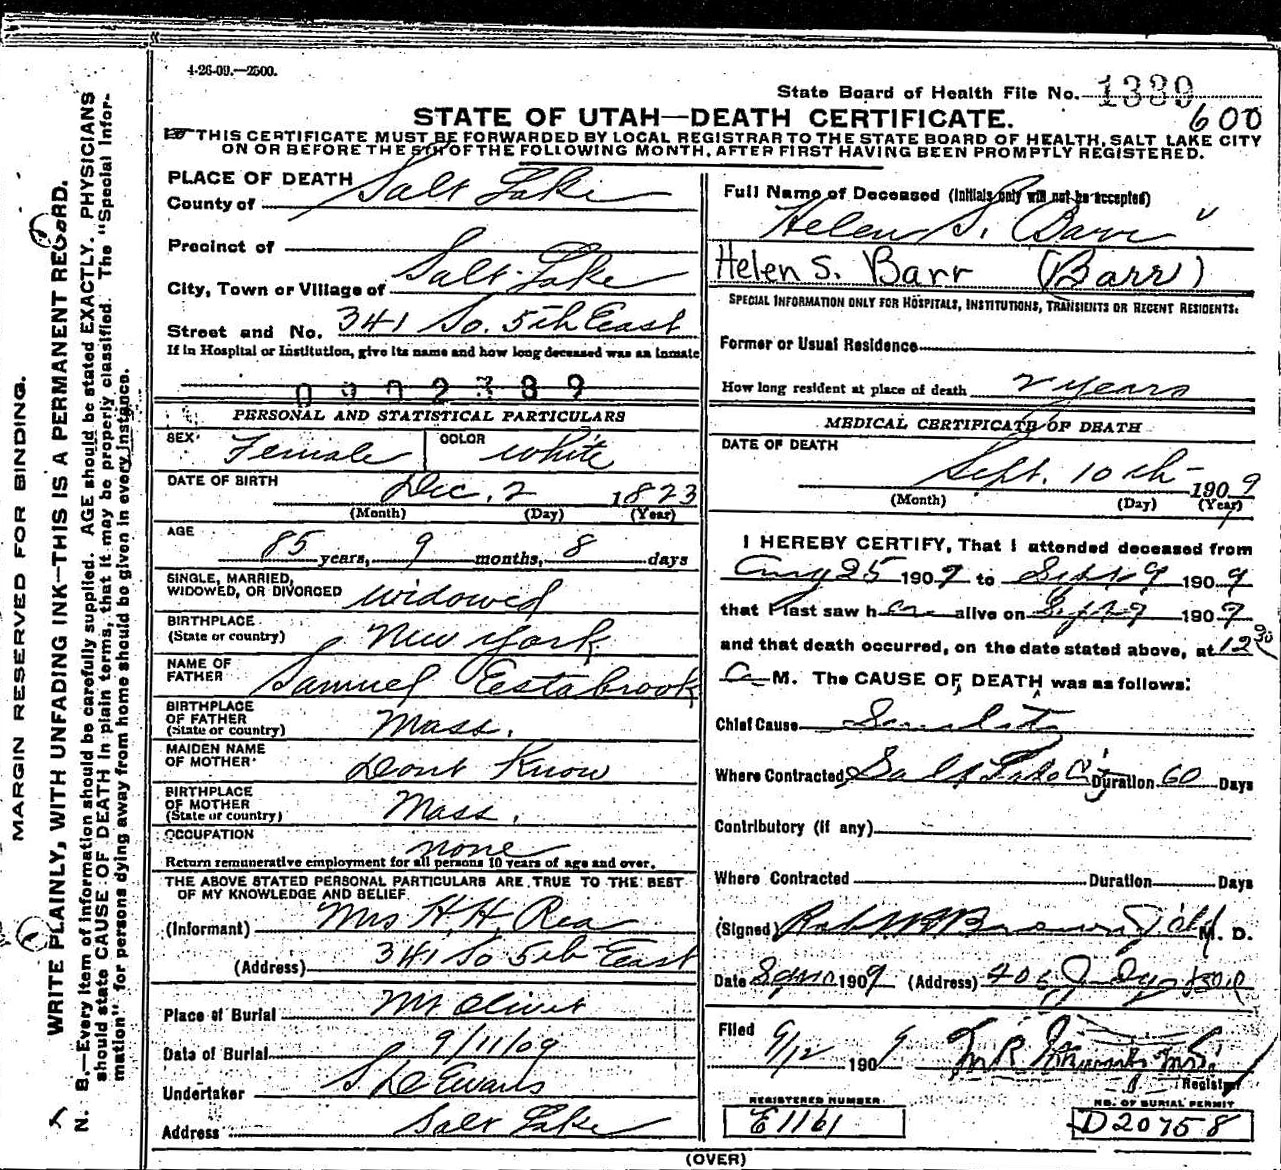 4-26-09.—2500.
State Board of Health File No. 1389
600
STATE OF UTAH—DEATH CERTIFICATE.
THIS CERTIFICATE MUST BE FORWARDED BY LOCAL REGISTRAR TO THE STATE BOARD OF HEALTH, SALT LAKE CITY
ON OR BEFORE THE 5TH OF THE FOLLOWING MONTH, AFTER FIRST HAVING BEEN PROMPTLY REGISTERED.
MARGIN RESERVED FOR BINDING.
WRITE PLAINLY, WITH UNFADING INK—THIS IS A PERMANENT RECORD.
N. B.—Every item of information should be carefully supplied. AGE should be stated EXACTLY. PHYSICIANS
should state CAUSE OF DEATH in plain terms, that it may be properly classified. The "Special Infor-
mation" for persons dying away from home should be given in every instance.
PLACE OF DEATH
County of Salt Lake
Precinct of
City, Town or Village of Salt Lake
Street and No. 341 So. 5th East
If in Hospital or Institution, give its name and how long deceased was an inmate
0072389
PERSONAL AND STATISTICAL PARTICULARS
SEX Female COLOR white
DATE OF BIRTH Dec. 2 1823
(Month) (Day) (Year)
AGE 85 years, 9 months, 8 days
SINGLE, MARRIED,
WIDOWED, OR DIVORCED widowed
BIRTHPLACE
(State or country) New York
NAME OF
FATHER Samuel Eestabrook
BIRTHPLACE
OF FATHER
(State or country) Mass.
MAIDEN NAME
OF MOTHER Dont Know
BIRTHPLACE
OF MOTHER
(State or country) Mass.
OCCUPATION none
Return remunerative employment for all persons 10 years of age and over.
THE ABOVE STATED PERSONAL PARTICULARS ARE TRUE TO THE BEST
OF MY KNOWLEDGE AND BELIEF
(Informant) Mrs H. H. Rea
(Address) 341 So 5th East
Place of Burial Mt Olivet
Data of Burial 9/11/09
Undertaker S D Evans
Address Salt Lake
Full Name of Deceased (Initials only will not be accepted)
Helen S. Barr
Helen S. Barr (Barr)
SPECIAL INFORMATION ONLY FOR HOSPITALS, INSTITUTIONS, TRANSIENTS OR RECENT RESIDENTS.
Former or Usual Residence
How long resident at place of death 2 years
MEDICAL CERTIFICATE OF DEATH
DATE OF DEATH
Sept. 10th 1909
(Month) (Day) (Year)
I HEREBY CERTIFY, That I attended deceased from
Aug 25 1909 to Sept 9 1909
that I last saw her alive on Sept 9 1909
and that death occurred, on the date stated above, at 12 30
A M. The CAUSE OF DEATH was as follows:
Chief Cause Senility
Where Contracted Salt Lake City Duration 60 Days
Contributory (if any)
Where Contracted Duration Days
(Signed) M. D.
Date 1909 (Address)
Filed 9/12 1909
Registrar
REGISTERED NUMBER
E1161
NO. OF BURIAL PERMIT
D20758
(OVER)